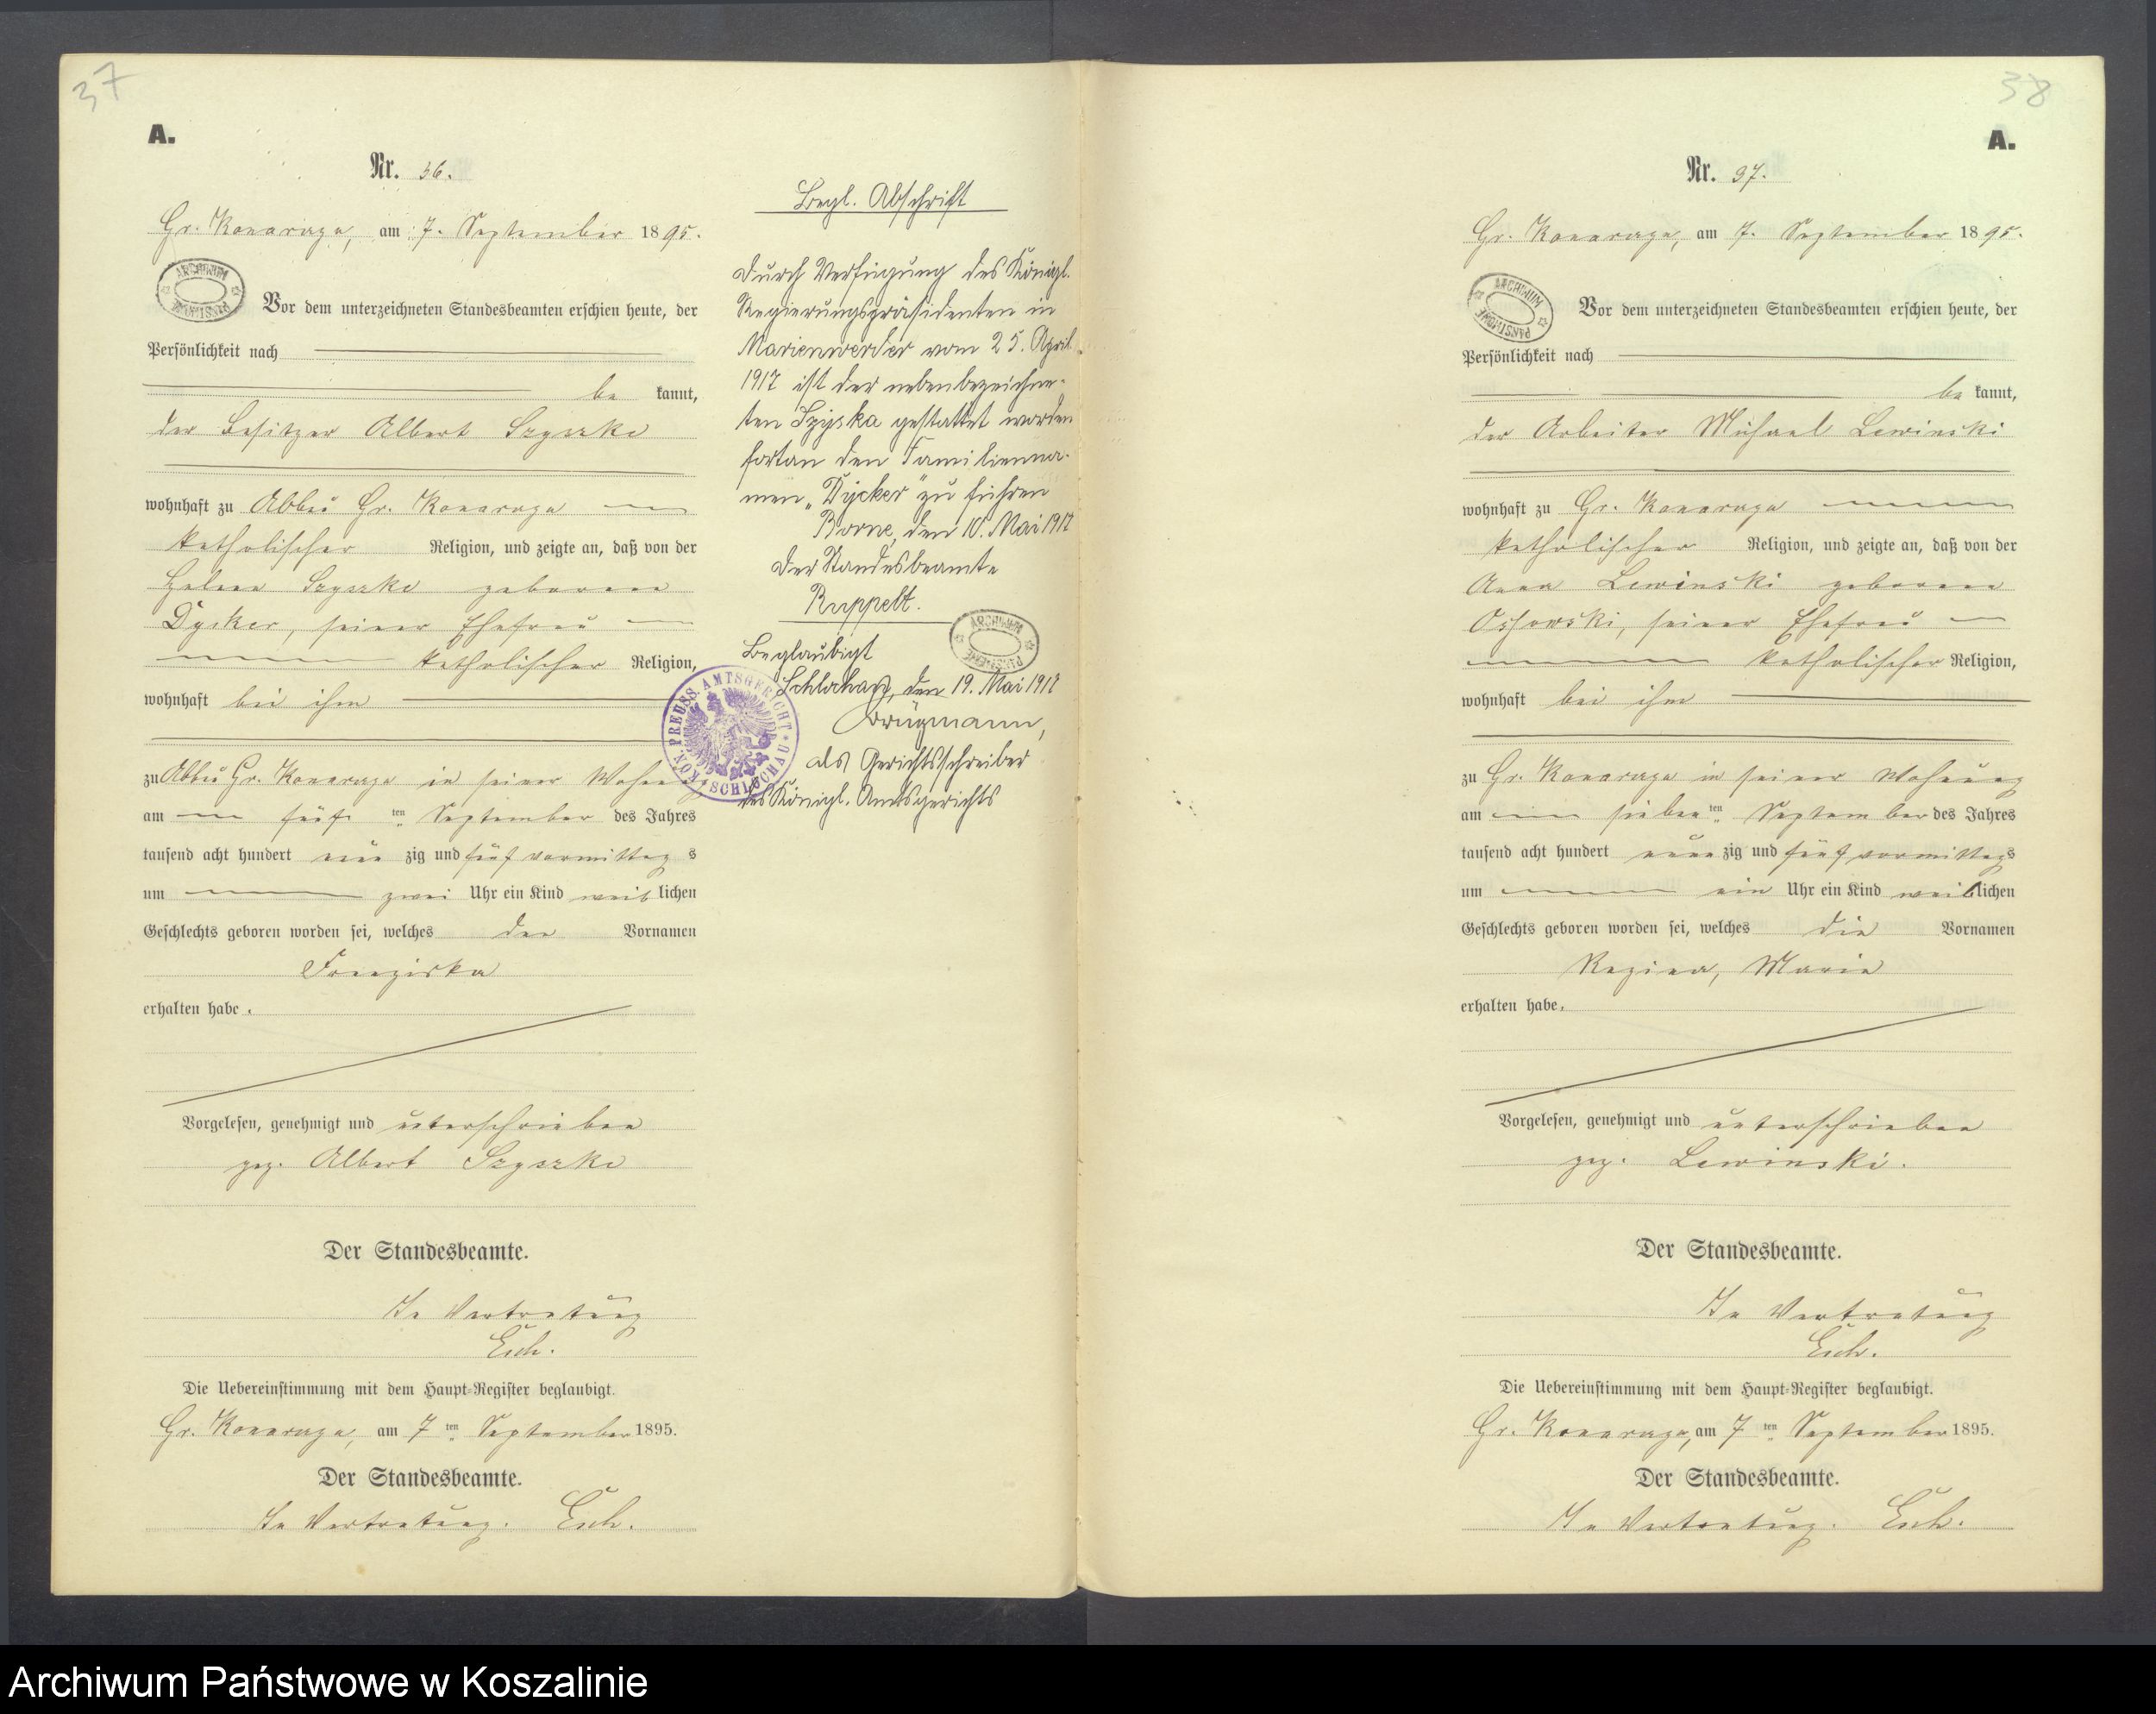 37
A.
Nr. 36.
Gr. Konarczyn, am 7. September 1895.
ARCHIWUM PAŃSTWOWE
Vor dem unterzeichneten Standesbeamten erschien heute, der
Persönlichkeit nach
be kannt,
der Besitzer Albert Szyszka
wohnhaft zu Abbau Gr. Konarczyn
katholischer Religion, und zeigte an, daß von der
Helena Szyszka geborene
Dycker, seiner Ehefrau
katholischer Religion,
wohnhaft bei ihm
zu Abbau Gr. Konarczyn in seiner Wohnung
am fünf ten September des Jahres
tausend acht hundert neun zig und fünf vormittag s
um zwei Uhr ein Kind weib lichen
Geschlechts geboren worden sei, welches den Vornamen
Franziska
erhalten habe.
Vorgelesen, genehmigt und unterschrieben
gez. Albert Szyszka
Der Standesbeamte.
In Vertretung
Die Uebereinstimmung mit dem Haupt-Register beglaubigt.
Gr. Konarczyn, am 7 ten September 1895.
Der Standesbeamte.
In Vertretung.
Begl. Abschrift
Durch Verfügung des Königl.
Regierungspräsidenten in
Marienwerder vom 25. April
1917 ist der nebenbezeichne-
ten Szyska gestattet worden
fortan den Familienna-
men „Dycker" zu führen
Borne, den 10. Mai 1917
Der Standesbeamte
Ruppelt.
ARCHIWUM PAŃSTWOWE
Beglaubigt
Schlochau, den 19. Mai 1917
Brügmann,
als Gerichtsschreiber
des Königl. Amtsgerichts
KÖN. PREUSS. AMTSGERICHT SCHLOCHAU
38
A.
Nr. 37.
Gr. Konarczyn, am 7. September 1895.
ARCHIWUM PAŃSTWOWE
Vor dem unterzeichneten Standesbeamten erschien heute, der
Persönlichkeit nach
be kannt,
der Arbeiter Michael Lewinski
wohnhaft zu Gr. Konarczyn
katholischer Religion, und zeigte an, daß von der
Anna Lewinski geborene
Ossowski, seiner Ehefrau
katholischer Religion,
wohnhaft bei ihm
zu Gr. Konarczyn in seiner Wohnung
am sieben ten September des Jahres
tausend acht hundert neun zig und fünf vormittags
um ein Uhr ein Kind weiblichen
Geschlechts geboren worden sei, welches die Vornamen
Regina, Maria
erhalten habe.
Vorgelesen, genehmigt und unterschrieben
gez. Lewinski.
Der Standesbeamte.
In Vertretung
Die Uebereinstimmung mit dem Haupt-Register beglaubigt.
Gr. Konarczyn, am 7 ten September 1895.
Der Standesbeamte.
In Vertretung.
Archiwum Państwowe w Koszalinie